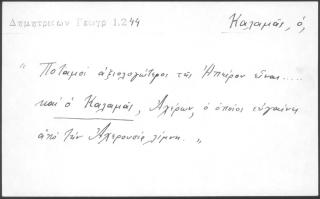 Δημητριέων Γεωγρ 1.244
Καλαμάς, ὁ,
“ Ποταμοί ἀξιολογώτεροι τῆς Ἠπείρου εἶναι.....
καί ὁ Καλαμάς, Ἀχέρων, ὁ ὁποῖος εὐγαίνει
ἀπό τήν Ἀχερουσία λίμνη. „